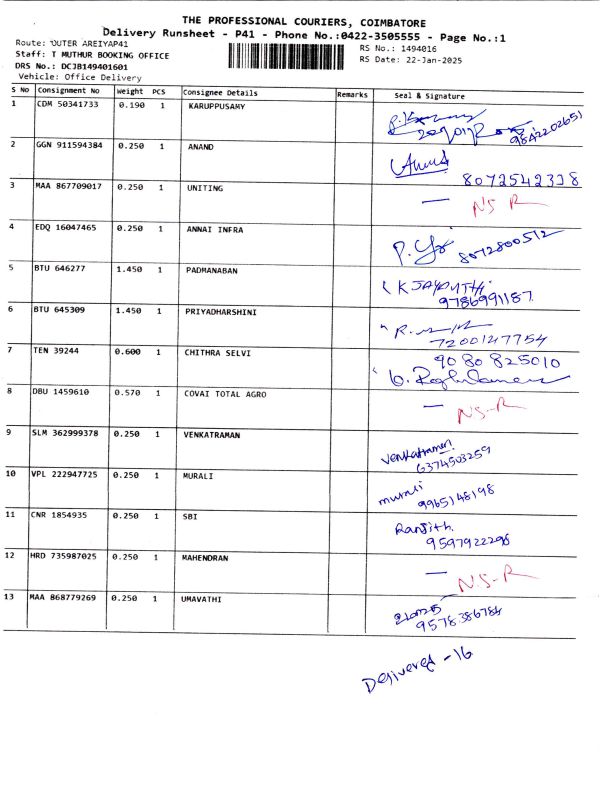 THE PROFESSIONAL COURIERS, COIMBATORE
Delivery Runsheet - P41 - Phone No.:0422-3505555 - Page No.:1
Route: OUTER AREIYAP41
RS No.: 1494016
Staff: T MUTHUR BOOKING OFFICE
RS Date: 22-Jan-2025
DRS No.: DCJB149401601
Vehicle: Office Delivery
S No Consignment No Weight PCS Consignee Details Remarks Seal & Signature
1 CDM 50341733 0.190 1 KARUPPUSAMY
9842202651
2 GGN 911594384 0.250 1 ANAND Anand
8072542338
3 MAA 867709017 0.250 1 UNITING — NS-R
4 EDQ 16047465 0.250 1 ANNAI INFRA 8072800512
5 BTU 646277 1.450 1 PADMANABAN
9786991187
6 BTU 645309 1.450 1 PRIYADHARSHINI
7200147754
7 TEN 39244 0.600 1 CHITHRA SELVI 9080825010
8 DBU 1459610 0.570 1 COVAI TOTAL AGRO — NS-R
9 SLM 362999378 0.250 1 VENKATRAMAN venkatraman
6374503259
10 VPL 222947725 0.250 1 MURALI murali
9965148198
11 CNR 1854935 0.250 1 SBI Ranjith
9597922296
12 HRD 735987025 0.250 1 MAHENDRAN — NS-R
13 MAA 868779269 0.250 1 UMAVATHI
9578386784
Delivered - 16